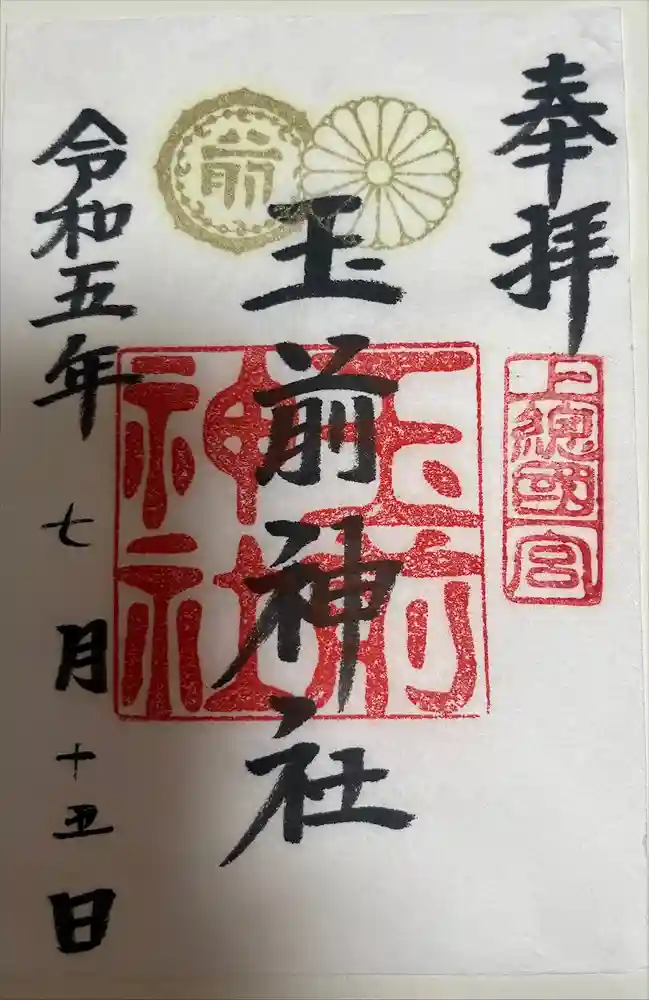 奉拝
上総國一宮
前
玉前神社
玉前神社
令和五年七月十五日